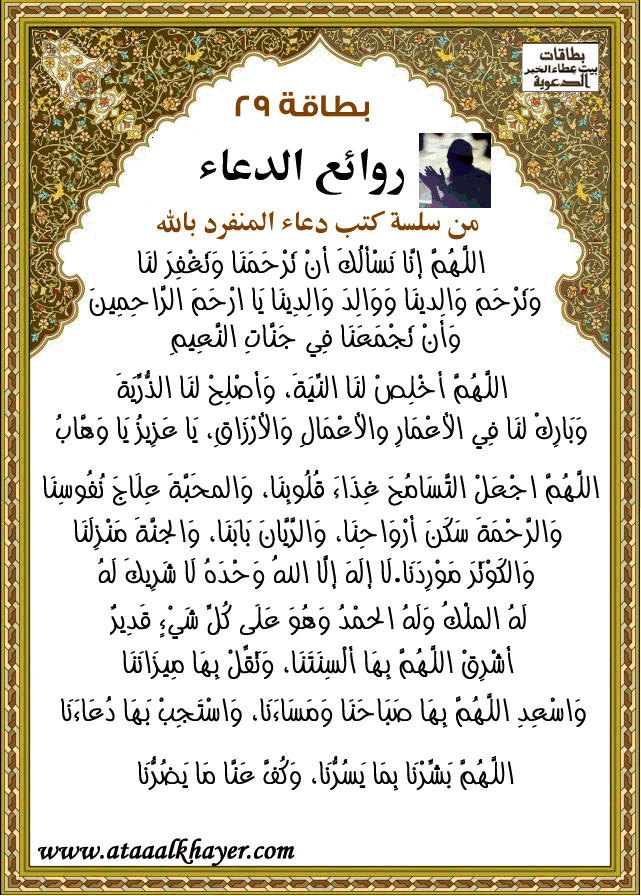 بطاقات
بيت عطاء الخير
الدعوية
بطاقة ٢٩
روائع الدعاء
من سلسة كتب دعاء المنفرد بالله
اللَّهُمَّ إِنَّا نَسْأَلُكَ أَنْ تَرْحَمَنَا وَتَغْفِرَ لَنَا
وَتَرْحَمَ وَالِدِينَا وَوَالِدَ وَالِدِينَا يَا ارْحَمَ الرَّاحِمِينَ
وَأَنْ تَجْمَعَنَا فِي جَنَّاتِ النَّعِيمِ
اللَّهُمَّ أَخْلِصْ لَنَا النِّيَةَ، وَأَصْلِحْ لَنَا الذُّرِّيَةَ
وَبَارِكْ لَنَا فِي الْأَعْمَارِ والْأَعْمَالِ وَالْأَرْزَاقِ، يَا عَزِيزُ يَا وَهَّابُ
اللَّهُمَّ اجْعَلْ التَّسَامُحَ غِذَاءَ قُلُوبِنَا، وَالمحَبَّةَ عِلَاجَ نُفُوسِنَا
وَالرَّحْمَةَ سَكَنَ أَرْوَاحِنَا، وَالرَّيَّانَ بَابَنَا، وَالجنَّةَ مَنْزِلَنَا
وَالكَوْثَرَ مَوْرِدَنَا.لَا إِلَهَ إِلَّا اللهُ وَحْدَهُ لَا شَرِيكَ لَهُ
لَهُ الملْكُ وَلَهُ الحمْدُ وَهُوَ عَلَى كُلِّ شَيْءٍ قَدِيرٌ
أَشْرِقْ اللَّهُمَّ بِهَا أَلْسِنَتَنَا، وَثَقِّلْ بِهَا مِيزَانَنَا
وَاسْعِدِ اللَّهُمَّ بِهَا صَبَاحَنَا وَمَسَاءَنَا، وَاسْتَجِبْ بَهَا دُعَاءَنَا
اللَّهُمَّ بَشِّرْنَا بِمَا يَسُرُّنَا، وَكُفَّ عَنَّا مَا يَضُرُّنَا
www.ataaalkhayer.com